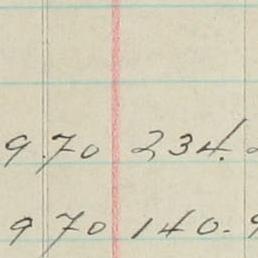 9.70 234.
9 70 140.